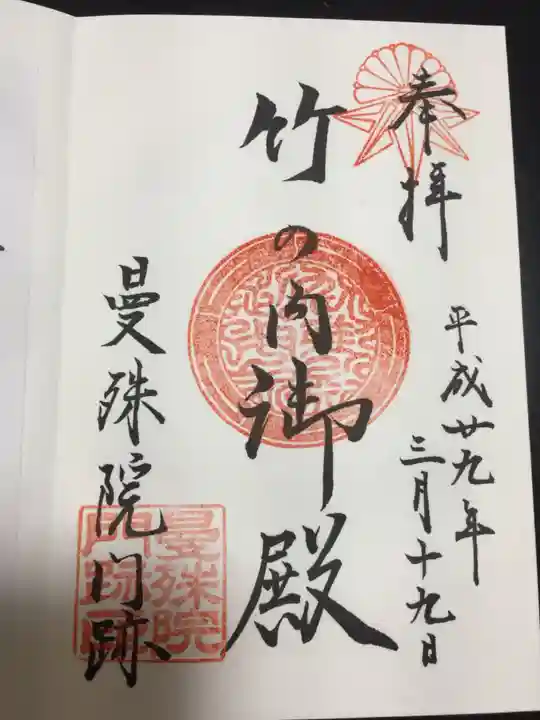 奉拝
平成廿九年
三月十九日
竹の内御殿
曼殊院門跡
曼殊院
門跡印